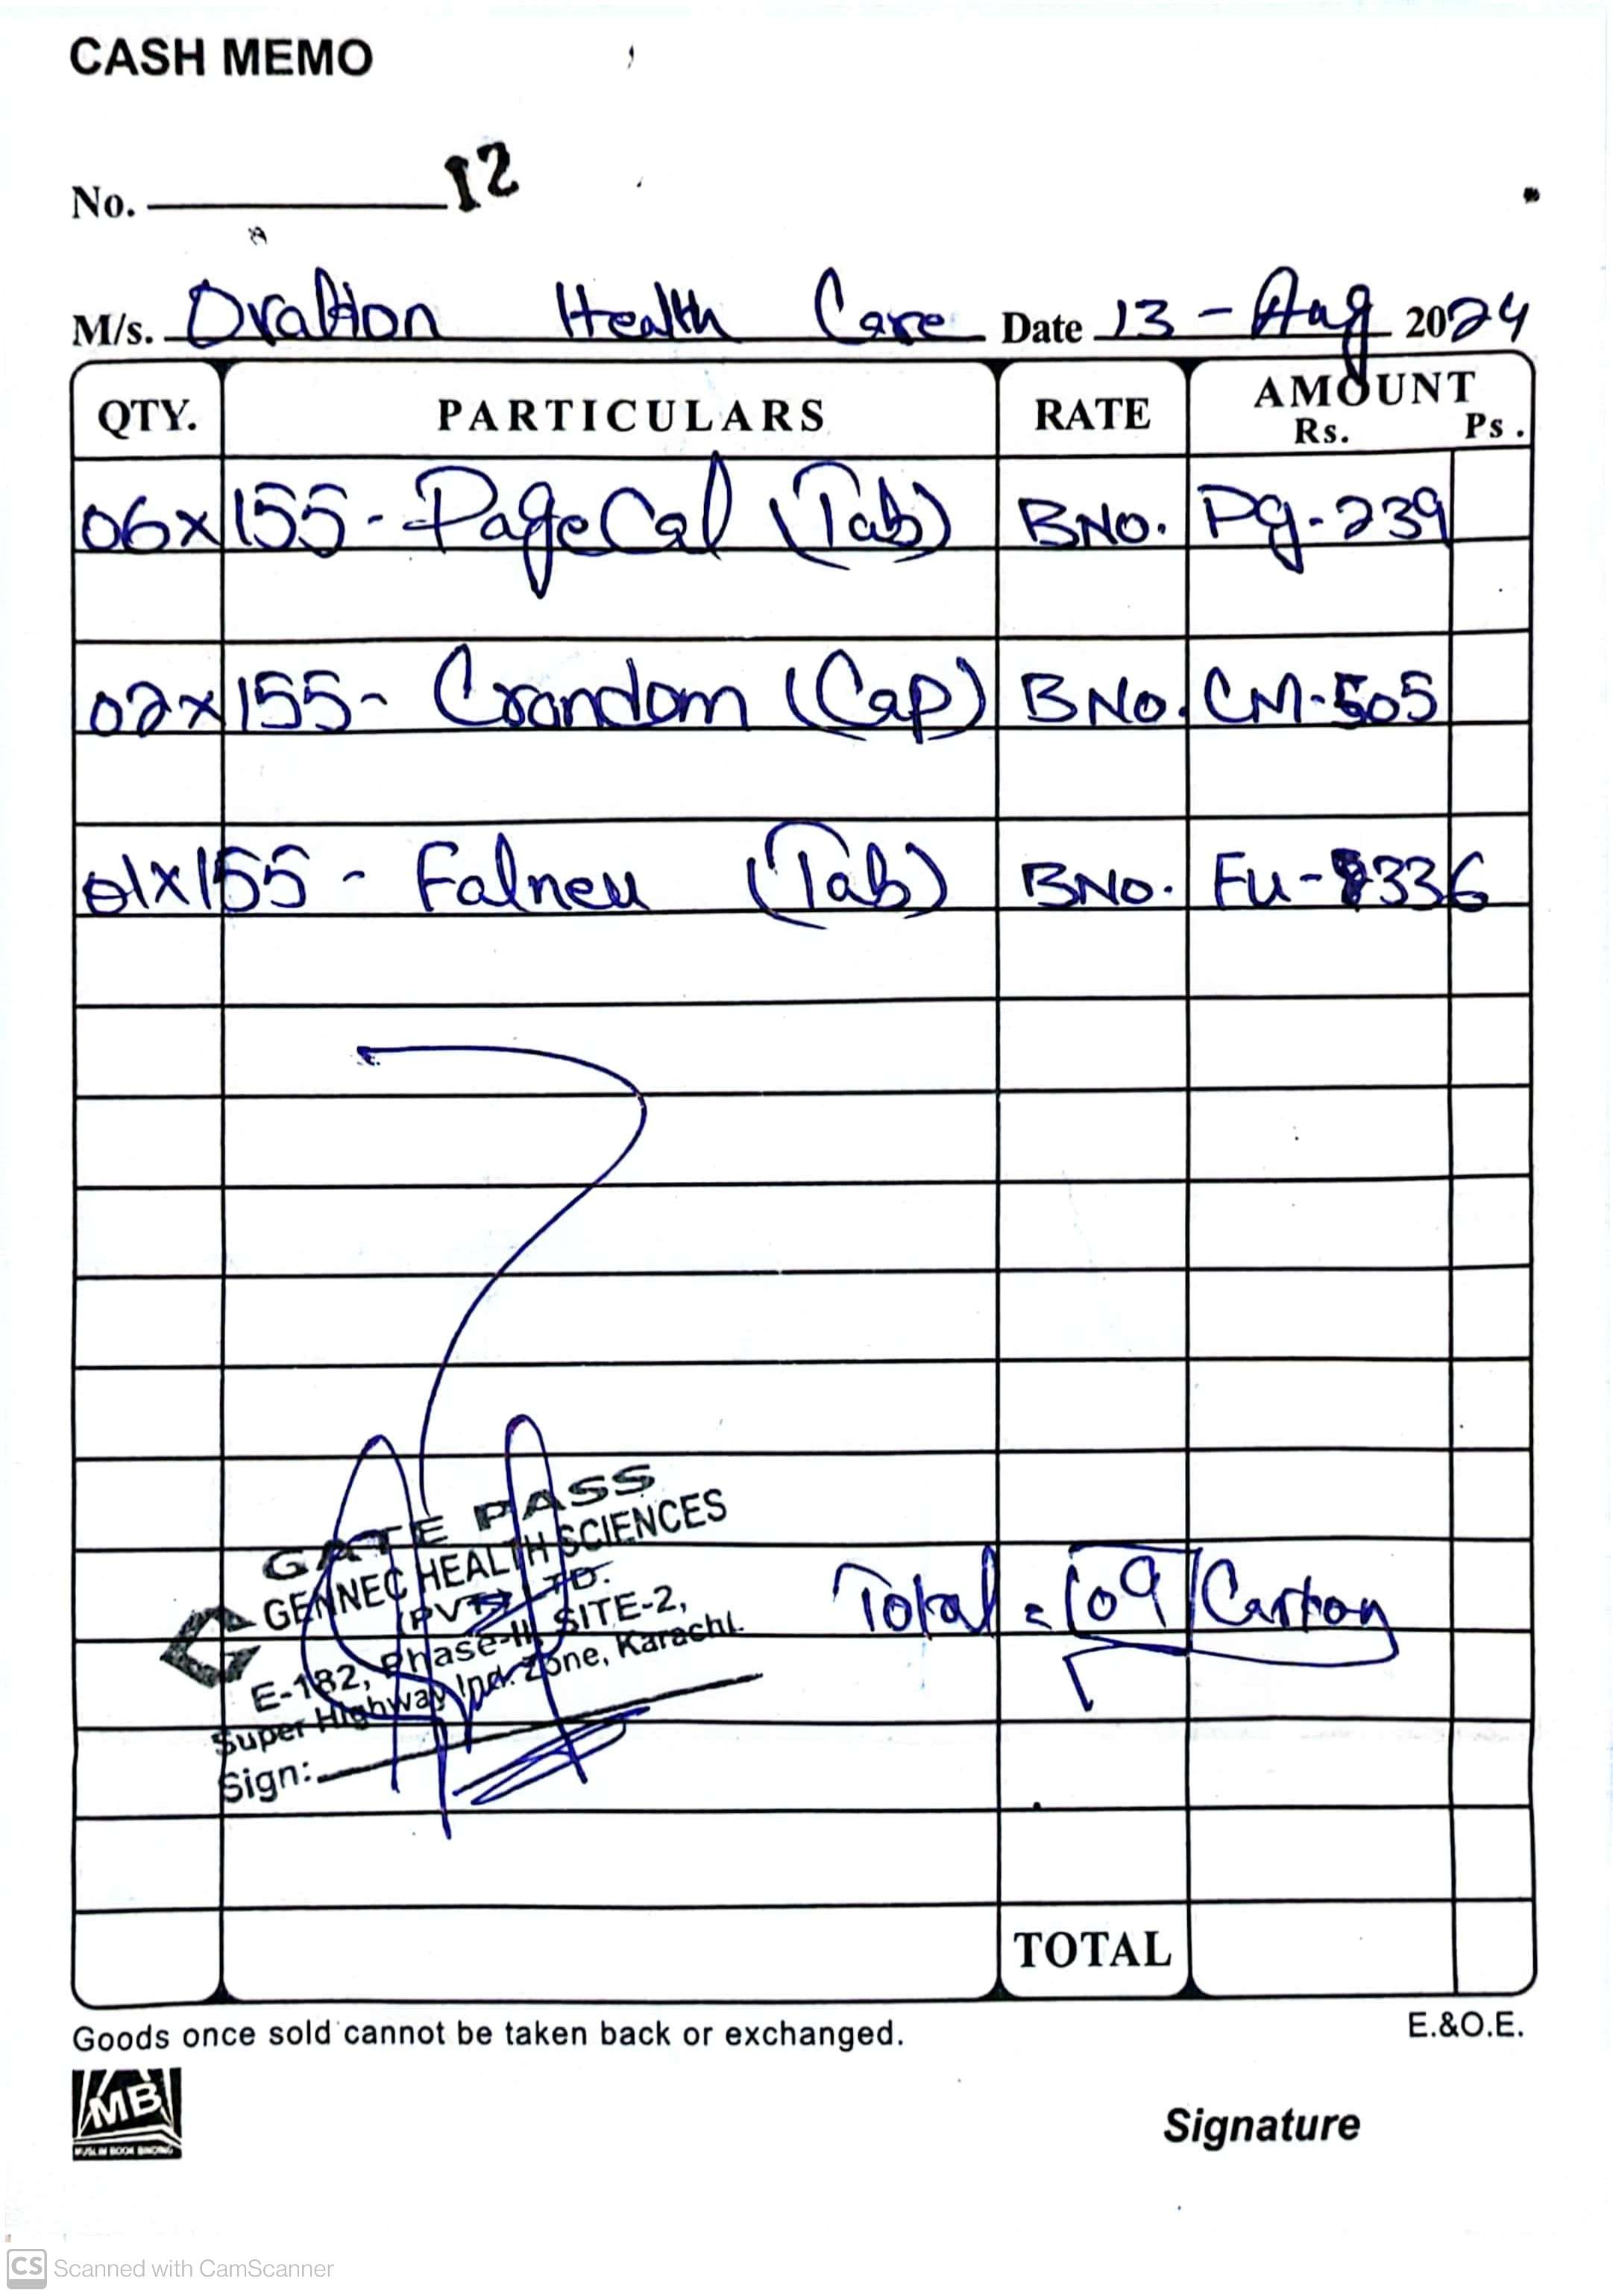 CASH MEMO
No. 12
M/s. Oralton Health Care Date 13 - Aug 2024
QTY. PARTICULARS RATE AMOUNT
Rs. Ps.
06x155 - PageCal (Tab) BNO. Pg-239
02x155 - Crandom (Cap) BNO. CM-505
01x155 - Falneu (Tab) BNO. FU-336
GATE PASS
GENNEC HEALTH SCIENCES
(PVT) LTD.
E-182, Phase-II, SITE-2,
Super Highway Ind. Zone, Karachi.
Sign:
Total = 09 Carton
TOTAL
Goods once sold cannot be taken back or exchanged. E.&O.E.
MB
MUSLIM BOOK BINDING
Signature
CS Scanned with CamScanner